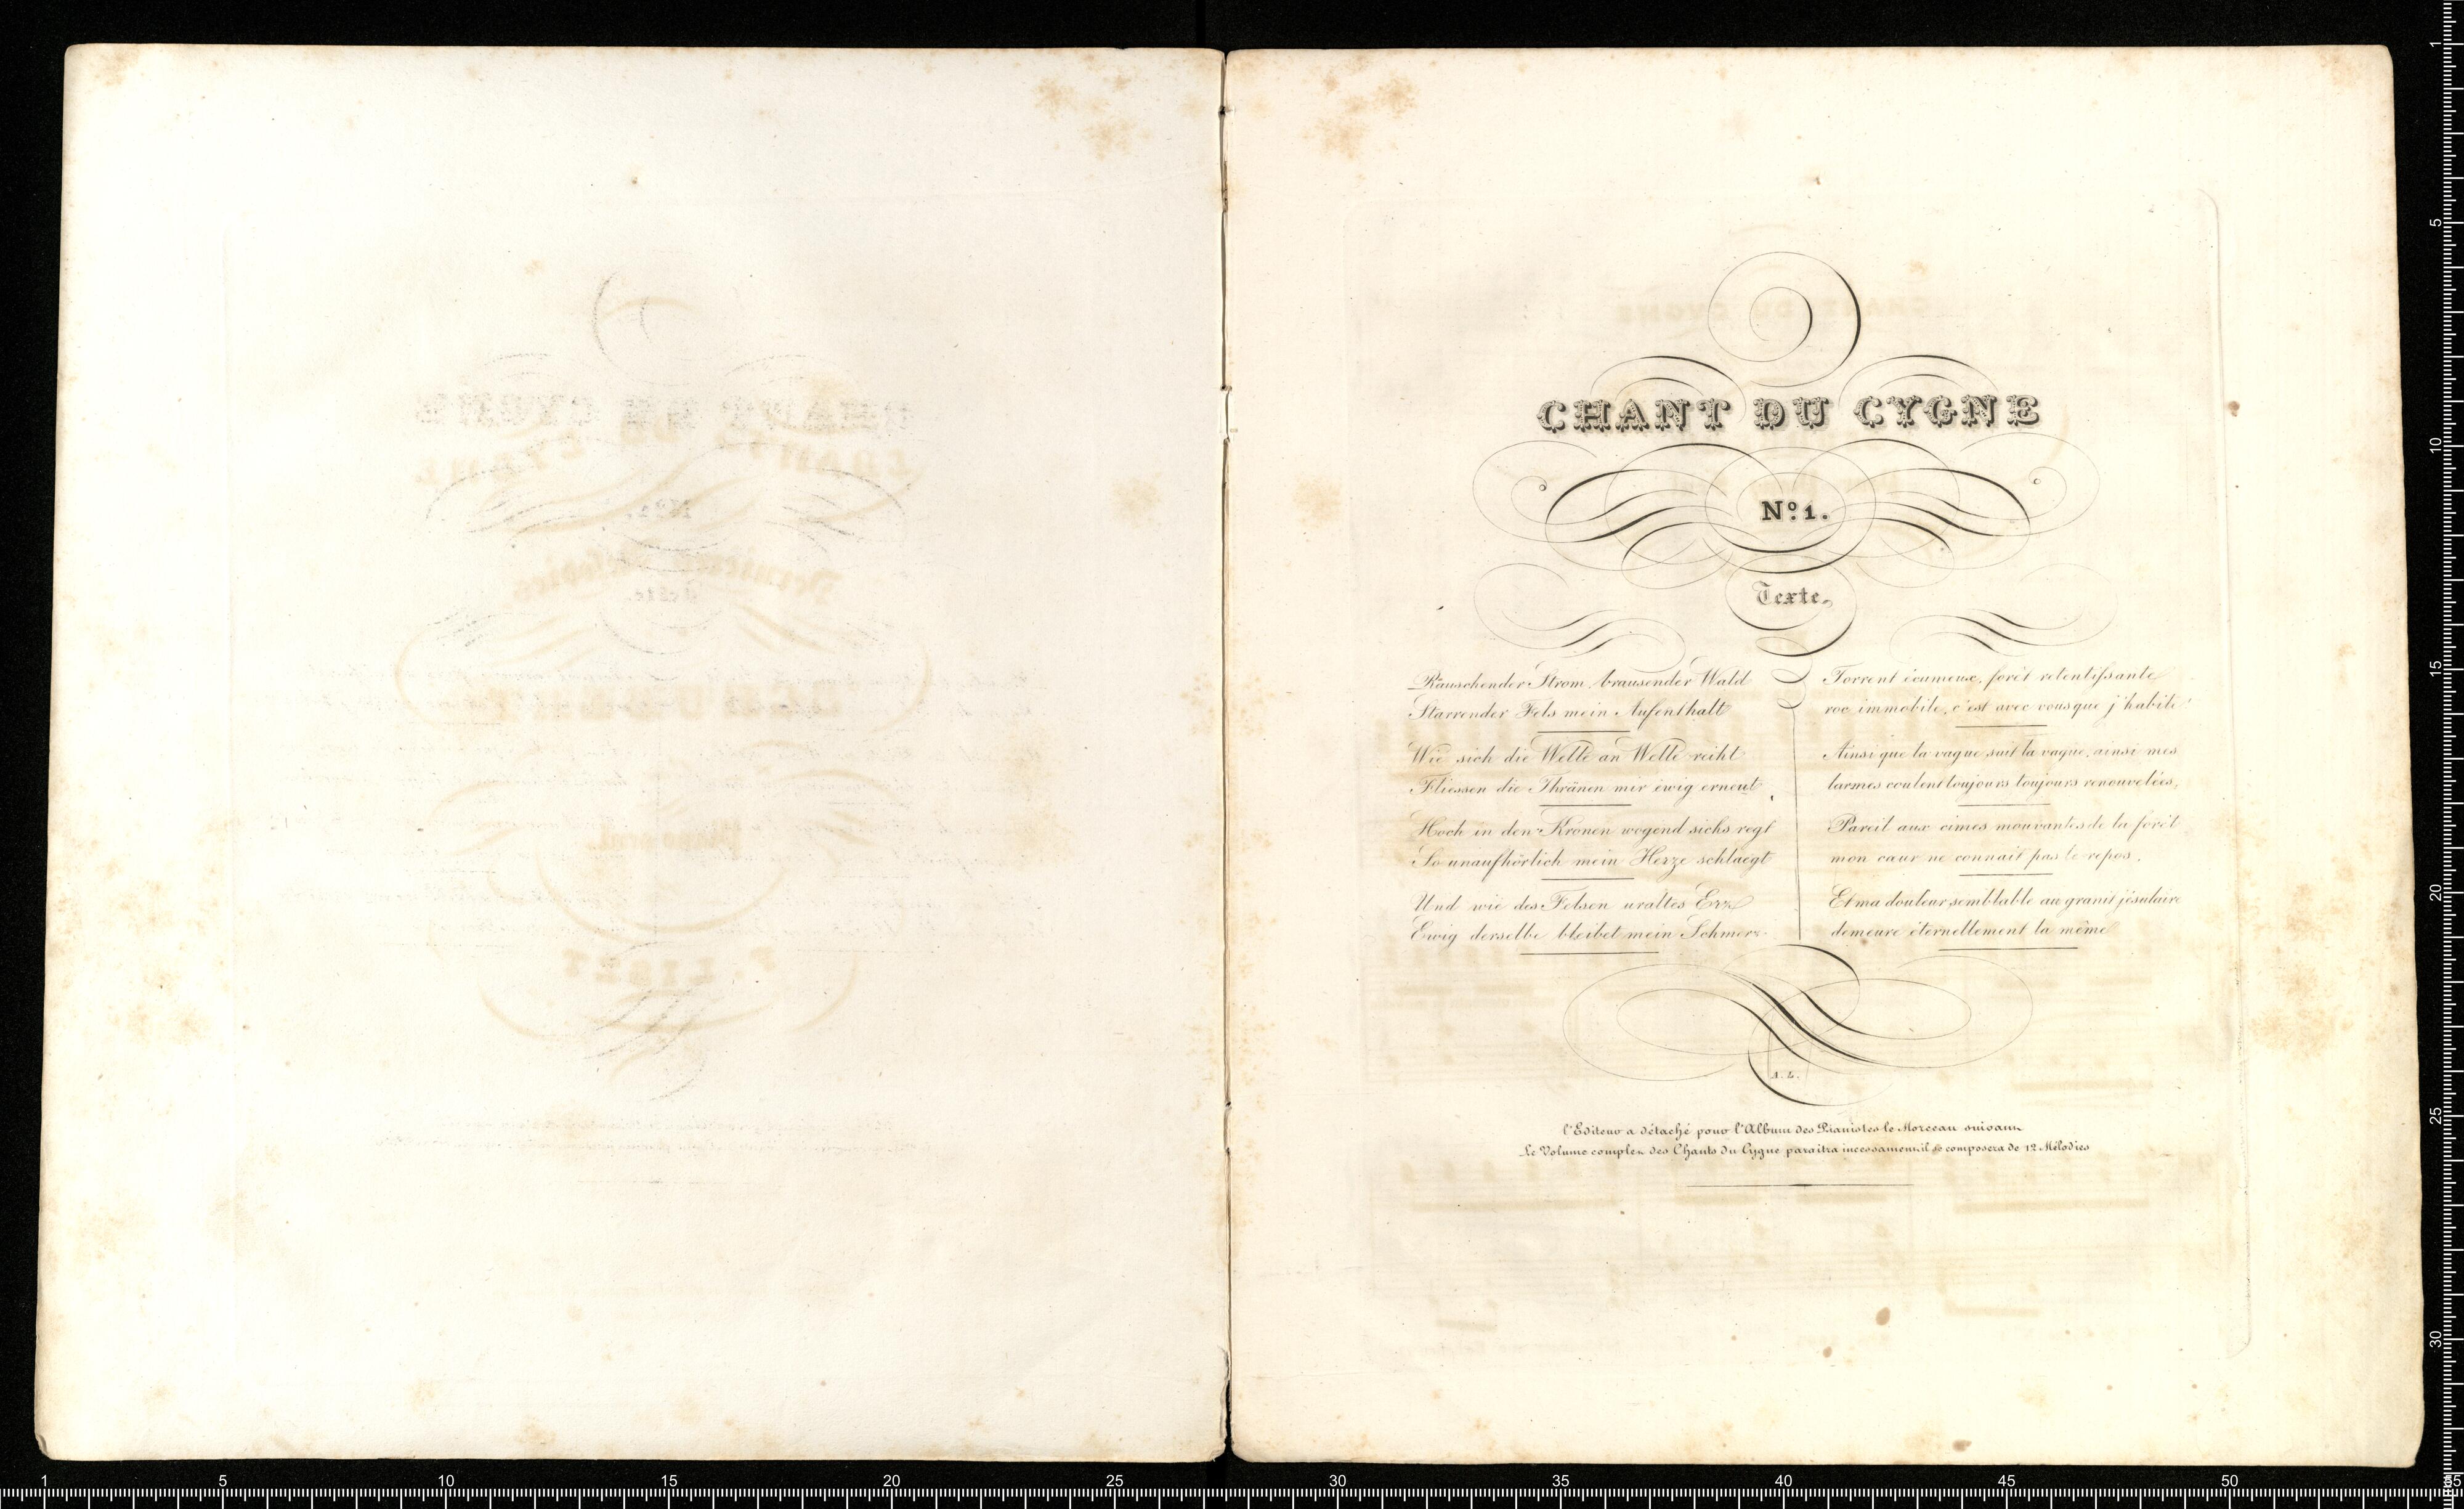 CHANT DU CYGNE
Nº 1.
Texte.
Räuschender Strom, brausender Wald
Starrender Fels mein Aufenthalt
Wie sich die Welle an Welle reiht
Fliessen die Thränen mir ewig erneut.
Hoch in den Kronen wogend sichs regt
So unaufhörlich mein Herze schlaegt
Und wie des Felsen uraltes Erz
Ewig derselbe bleibet mein Schmerz.
Torrent écumeux, forêt retentissante
roc immobile, c'est avec vous que j'habite!
Ainsi que la vague suit la vague, ainsi mes
larmes coulent toujours toujours renouvelées,
Pareil aux cimes mouvantes de la forêt
mon cœur ne connait pas le repos.
Et ma douleur semblable au granit
demeure éternellement la même
A. L.
l'Editeur a détaché pour l'Album des Pianistes le Morceau suivant
Le Volume complet des Chants du Cygne paraitra incessament il se composera de 12 Mélodies
F. LISZT
1
5
10
15
20
25
30
1
5
10
15
20
25
30
35
40
45
50